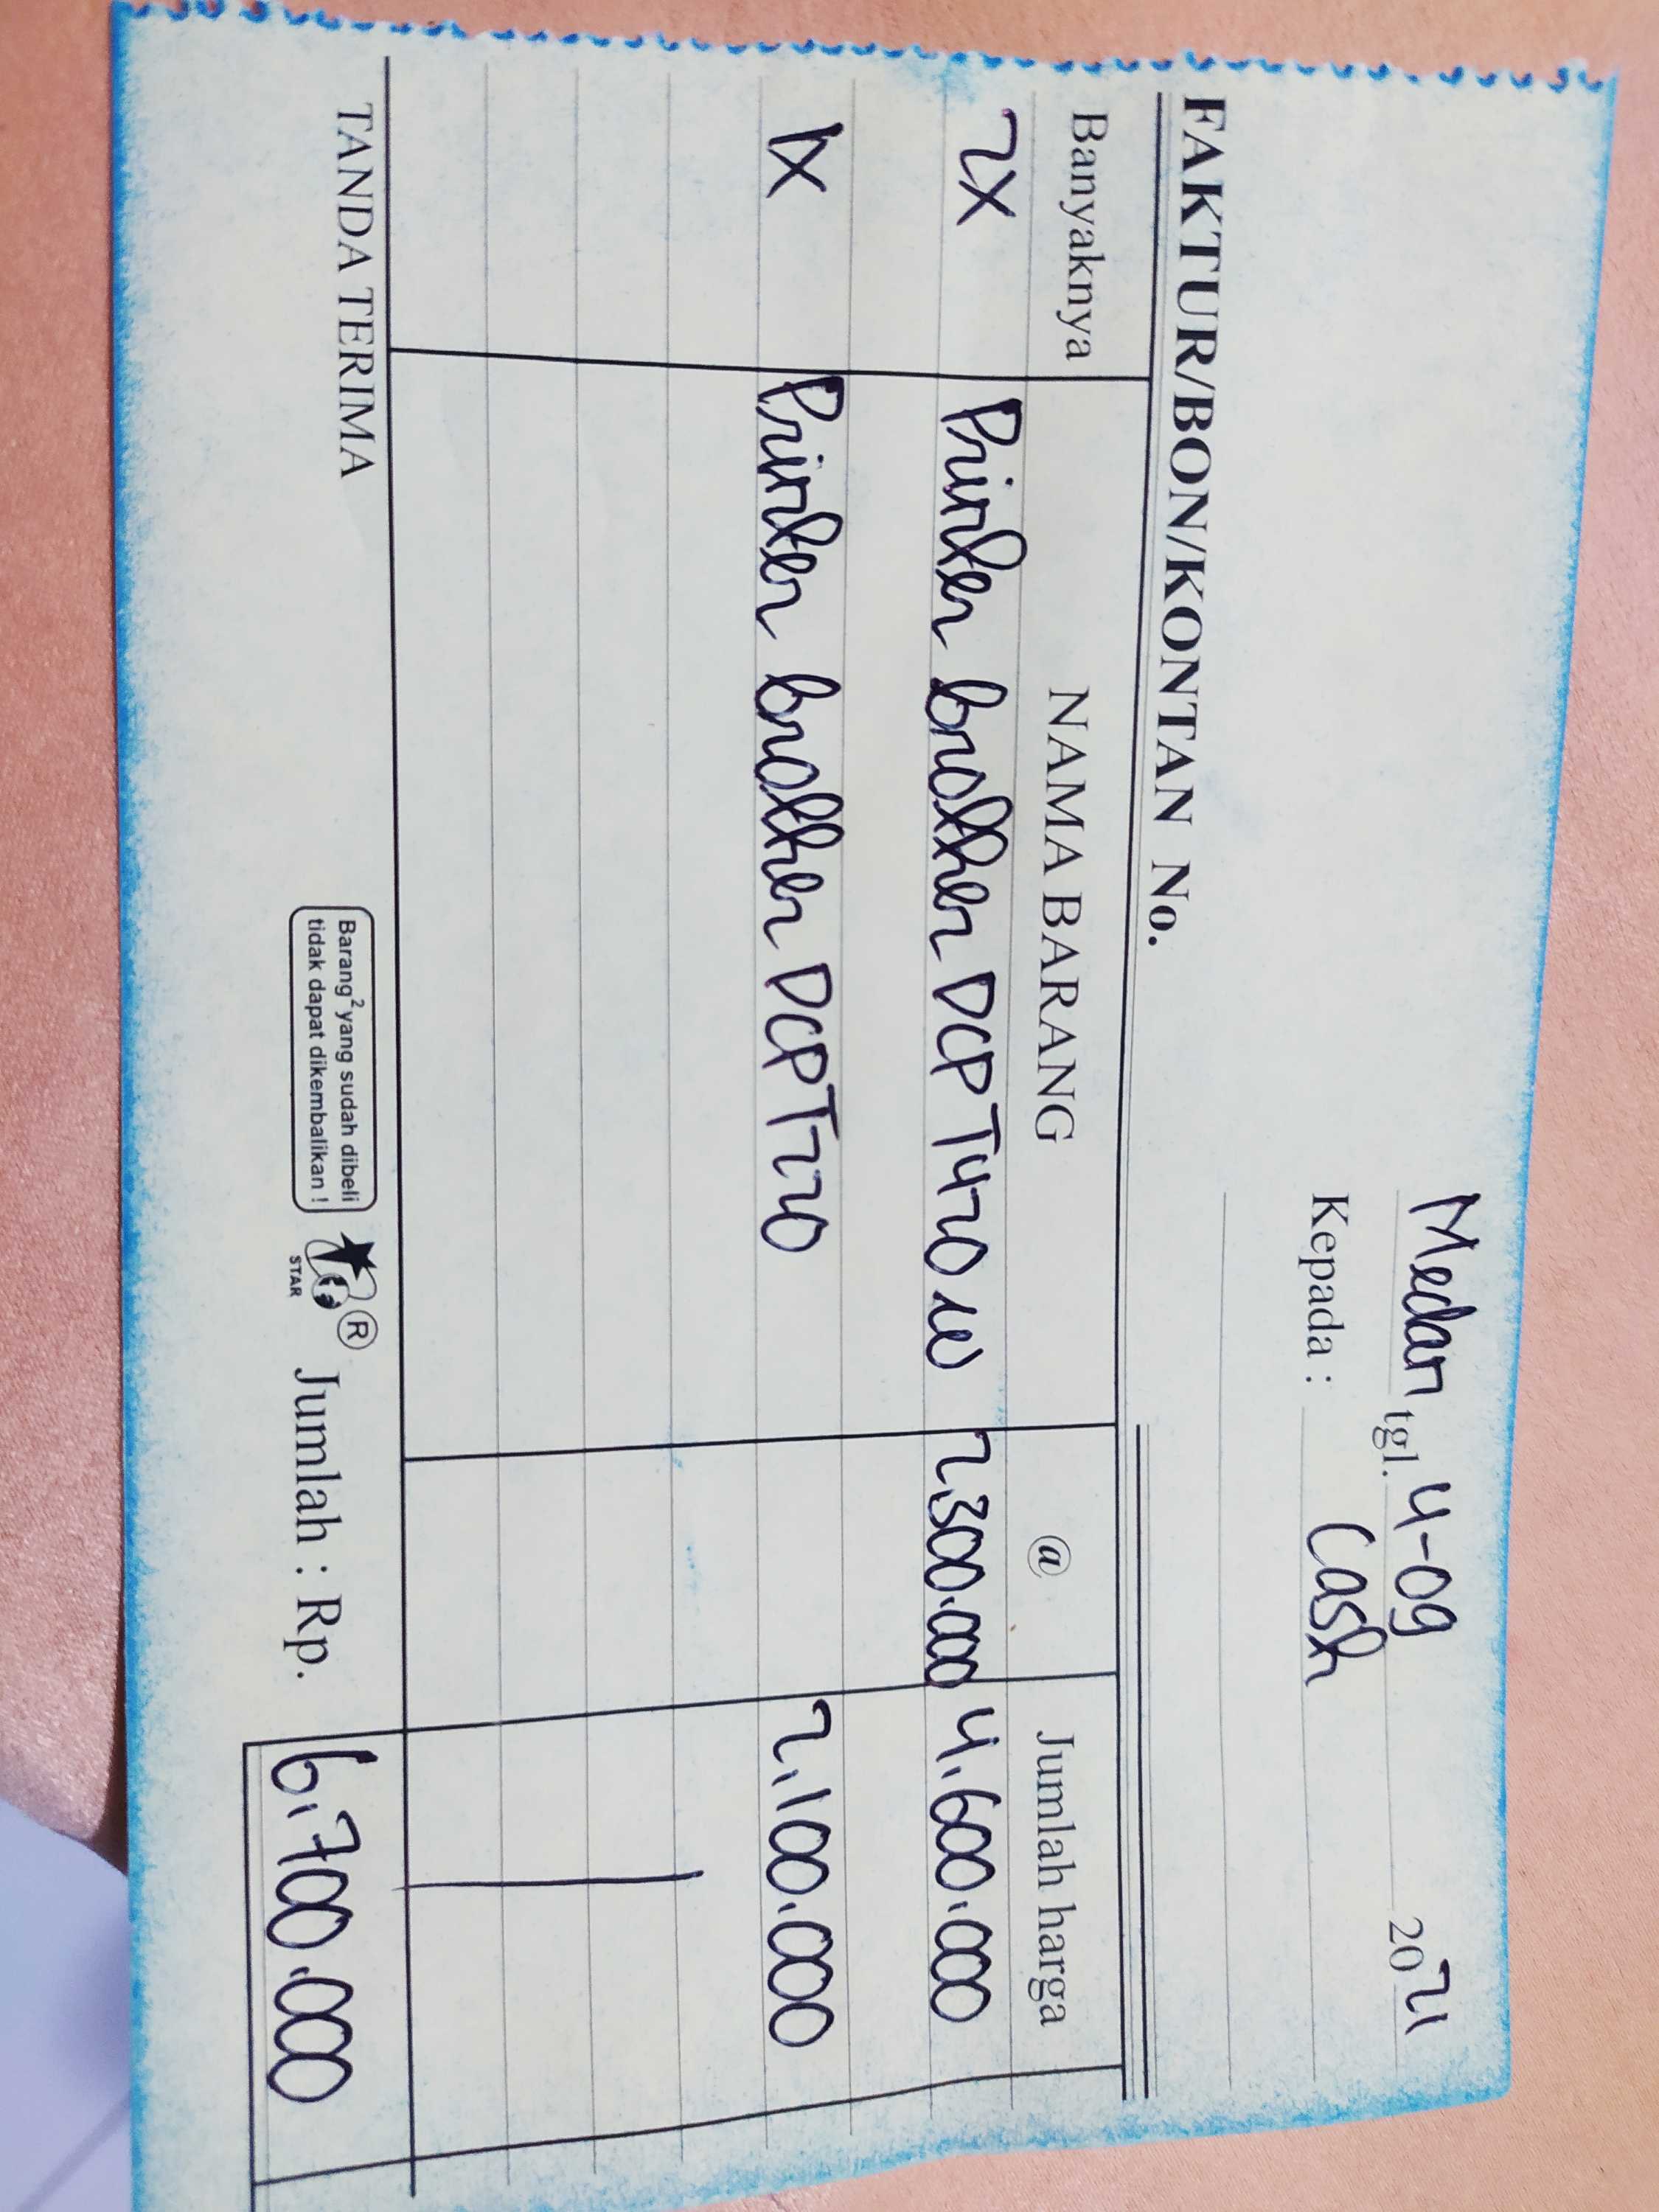 Medan tgl. 4-09 2021
Kepada : Cash
FAKTUR/BON/KONTAN No.
Banyaknya NAMA BARANG @ Jumlah harga
2X Printer brother DCP T420 W 2.300.000 4.600.000
1X Printer brother DCPT220 2.100.000
TANDA TERIMA
Barang² yang sudah dibeli
tidak dapat dikembalikan !
® STAR
Jumlah : Rp. 6.700.000